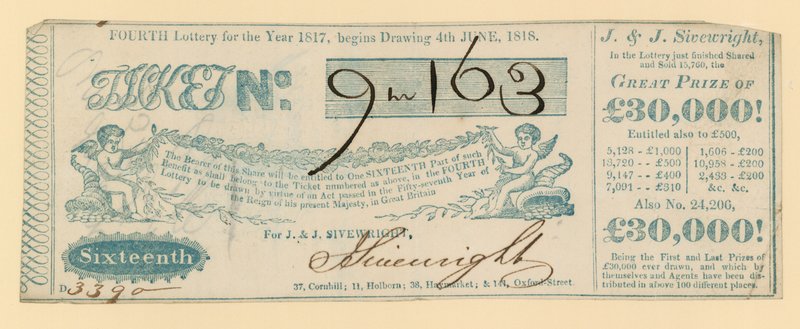 FOURTH Lottery for the Year 1817, begins Drawing 4th JUNE, 1818.
TICKET No. 9m163
The Bearer of this Share will be entitled to One SIXTEENTH Part of such
Benefit as shall belong to the Ticket numbered as above, in the FOURTH
Lottery to be drawn by virtue of an Act passed in the Fifty-seventh Year of
the Reign of his present Majesty, in Great Britain
For J. & J. SIVEWRIGHT,
JSivewright
Sixteenth
D 3390
37, Cornhill; 11, Holborn; 38, Haymarket; & 141, Oxford-Street.
J. & J. Sivewright,
In the Lottery just finished Shared
and Sold 15,760, the
GREAT PRIZE OF
£30,000!
Entitled also to £500,
5,128 - £1,000 1,606 - £200
13,720 - - £500 10,958 - £200
9,147 - - £400 2,433 - £200
7,091 - - £310 &c. &c.
Also No. 24,206,
£30,000!
Being the First and Last Prizes of
£30,000 ever drawn, and which by
themselves and Agents have been dis-
tributed in above 100 different places.